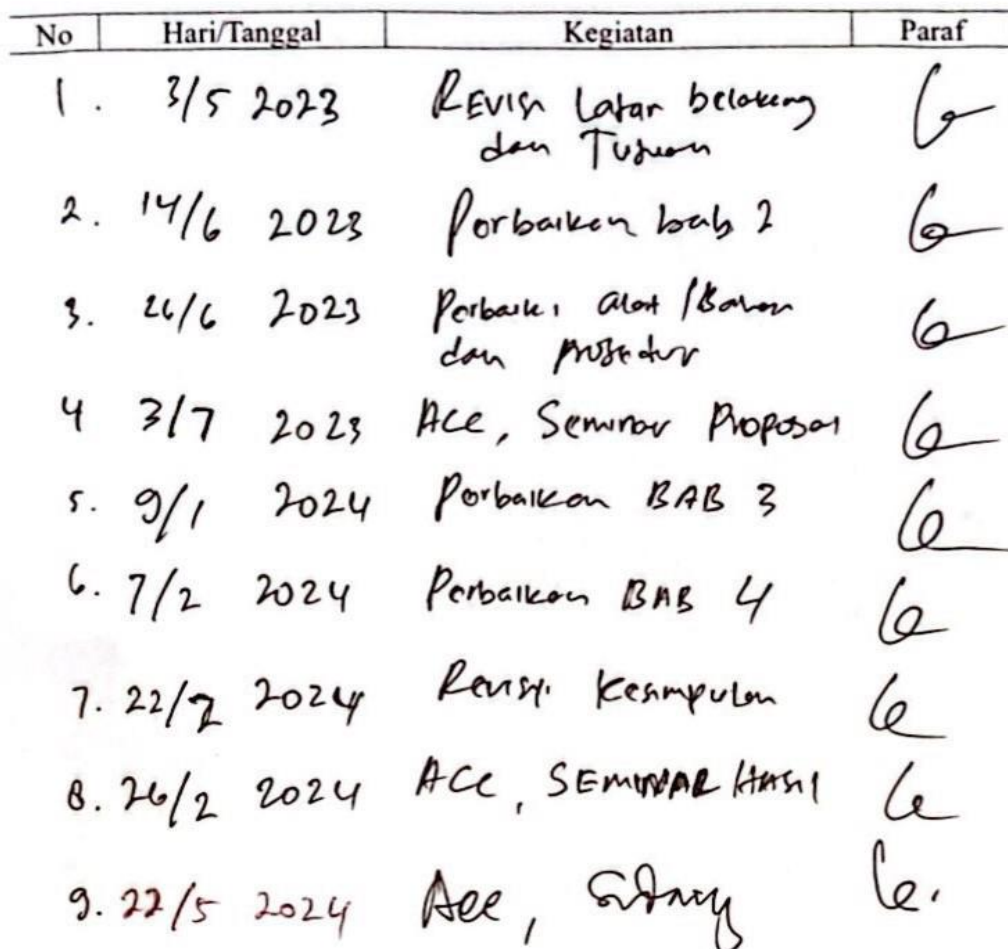 No Hari/Tanggal Kegiatan Paraf
1. 3/5 2023 REvisi Latar belakang
dan Tujuan
2. 14/6 2023 Perbaikan bab 2
3. 26/6 2023 Perbaiki alat/Bahan
dan prosedur
4 3/7 2023 Acc, Seminar Proposal
5. 9/1 2024 Perbaikan BAB 3
6. 7/2 2024 Perbaikan BAB 4
7. 22/2 2024 Revisi Kesimpulan
8. 26/2 2024 ACC, SEMINAR HASil
9. 22/5 2024 Acc, Sidang